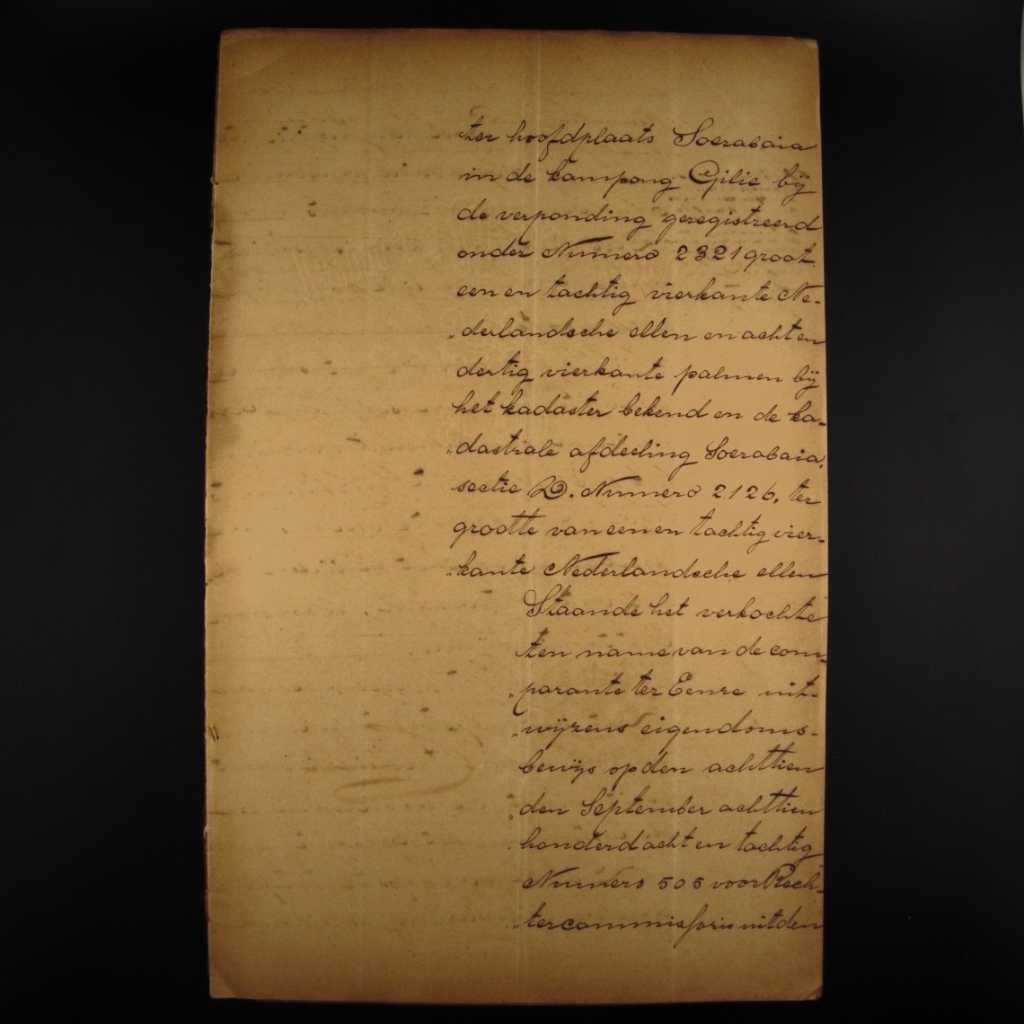 ter hoofdplaats Soerabaia
in de kampong Gilie bij
de verponding geregistreerd
onder Numero 2321 groot
een en tachtig vierkante Ne-
derlandsche ellen en acht en
dertig vierkante palmen bij
het kadaster bekend en de ka-
dastrale afdeeling Soerabaia,
sectie D. Numero 2126, ter
grootte van een en tachtig vier-
kante Nederlandsche ellen
Staande het verkochte
ten name van de com-
parante ter Eenre uit-
wijzens eigendoms-
bewijs op den achttien
den September achttien
honderd acht en tachtig
Numero 505 voor Rech-
tercommissaris uit den